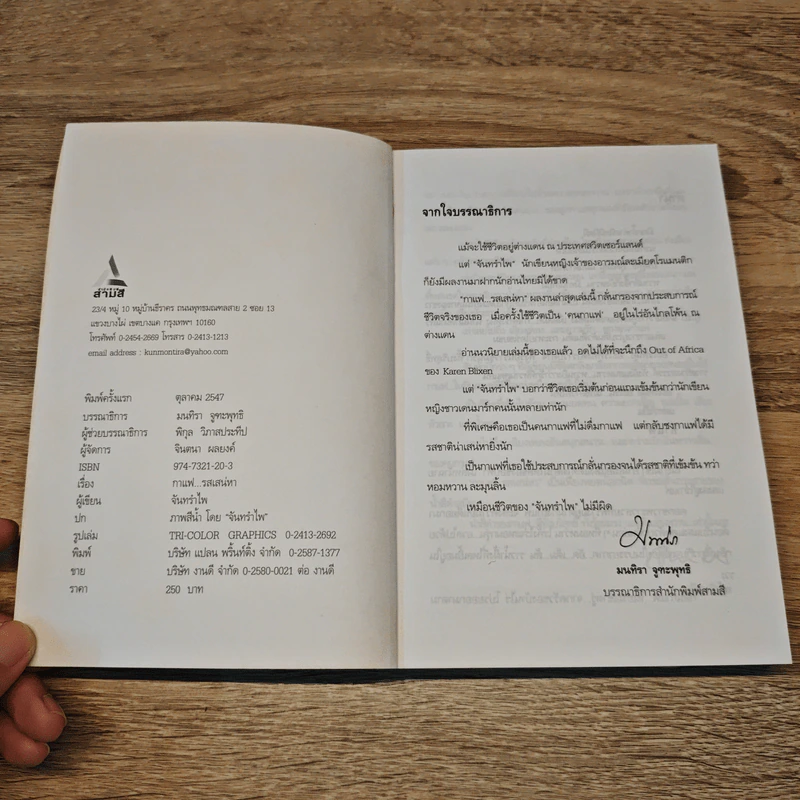 สามสี
23/4 หมู่ 10 หมู่บ้านธีราคร ถนนพุทธมณฑลสาย 2 ซอย 13
แขวงบางไผ่ เขตบางแค กรุงเทพฯ 10160
โทรศัพท์ 0-2454-2669 โทรสาร 0-2413-1213
email address : kunmontira@yahoo.com
พิมพ์ครั้งแรก ตุลาคม 2547
บรรณาธิการ มนทิรา จูฑะพุทธิ
ผู้ช่วยบรรณาธิการ พิกุล วิภาสประทีป
ผู้จัดการ จินตนา ผลยงค์
ISBN 974-7321-20-3
เรื่อง กาแฟ...รสเสน่หา
ผู้เขียน จันทรำไพ
ปก ภาพสีน้ำ โดย "จันทรำไพ"
รูปเล่ม TRI-COLOR GRAPHICS 0-2413-2692
พิมพ์ บริษัท แปลน พริ้นท์ติ้ง จำกัด 0-2587-1377
ขาย บริษัท งานดี จำกัด 0-2580-0021 ต่อ งานดี
ราคา 250 บาท
จากใจบรรณาธิการ
แม้จะใช้ชีวิตอยู่ต่างแดน ณ ประเทศสวิตเซอร์แลนด์
แต่ "จันทรำไพ" นักเขียนหญิงเจ้าของอารมณ์ละเมียดโรแมนติก
ก็ยังมีผลงานมาฝากนักอ่านไทยมิได้ขาด
"กาแฟ...รสเสน่หา" ผลงานล่าสุดเล่มนี้ กลั่นกรองจากประสบการณ์
ชีวิตจริงของเธอ เมื่อครั้งใช้ชีวิตเป็น 'คนกาแฟ' อยู่ในไร่อันไกลโพ้น ณ
ต่างแดน
อ่านนวนิยายเล่มนี้ของเธอแล้ว อดไม่ได้ที่จะนึกถึง Out of Africa
ของ Karen Blixen
แต่ "จันทรำไพ" บอกว่าชีวิตเธอเริ่มต้นก่อนแถมเข้มข้นกว่านักเขียน
หญิงชาวเดนมาร์กคนนั้นหลายเท่านัก
ที่พิเศษคือเธอเป็นคนกาแฟที่ไม่ดื่มกาแฟ แต่กลับชงกาแฟได้มี
รสชาติน่าเสน่หายิ่งนัก
เป็นกาแฟที่เธอใช้ประสบการณ์กลั่นกรองจนได้รสชาติที่เข้มข้น ทว่า
หอมหวาน ละมุนลิ้น
เหมือนชีวิตของ "จันทรำไพ" ไม่มีผิด
มนทิรา จูฑะพุทธิ
บรรณาธิการสำนักพิมพ์สามสี